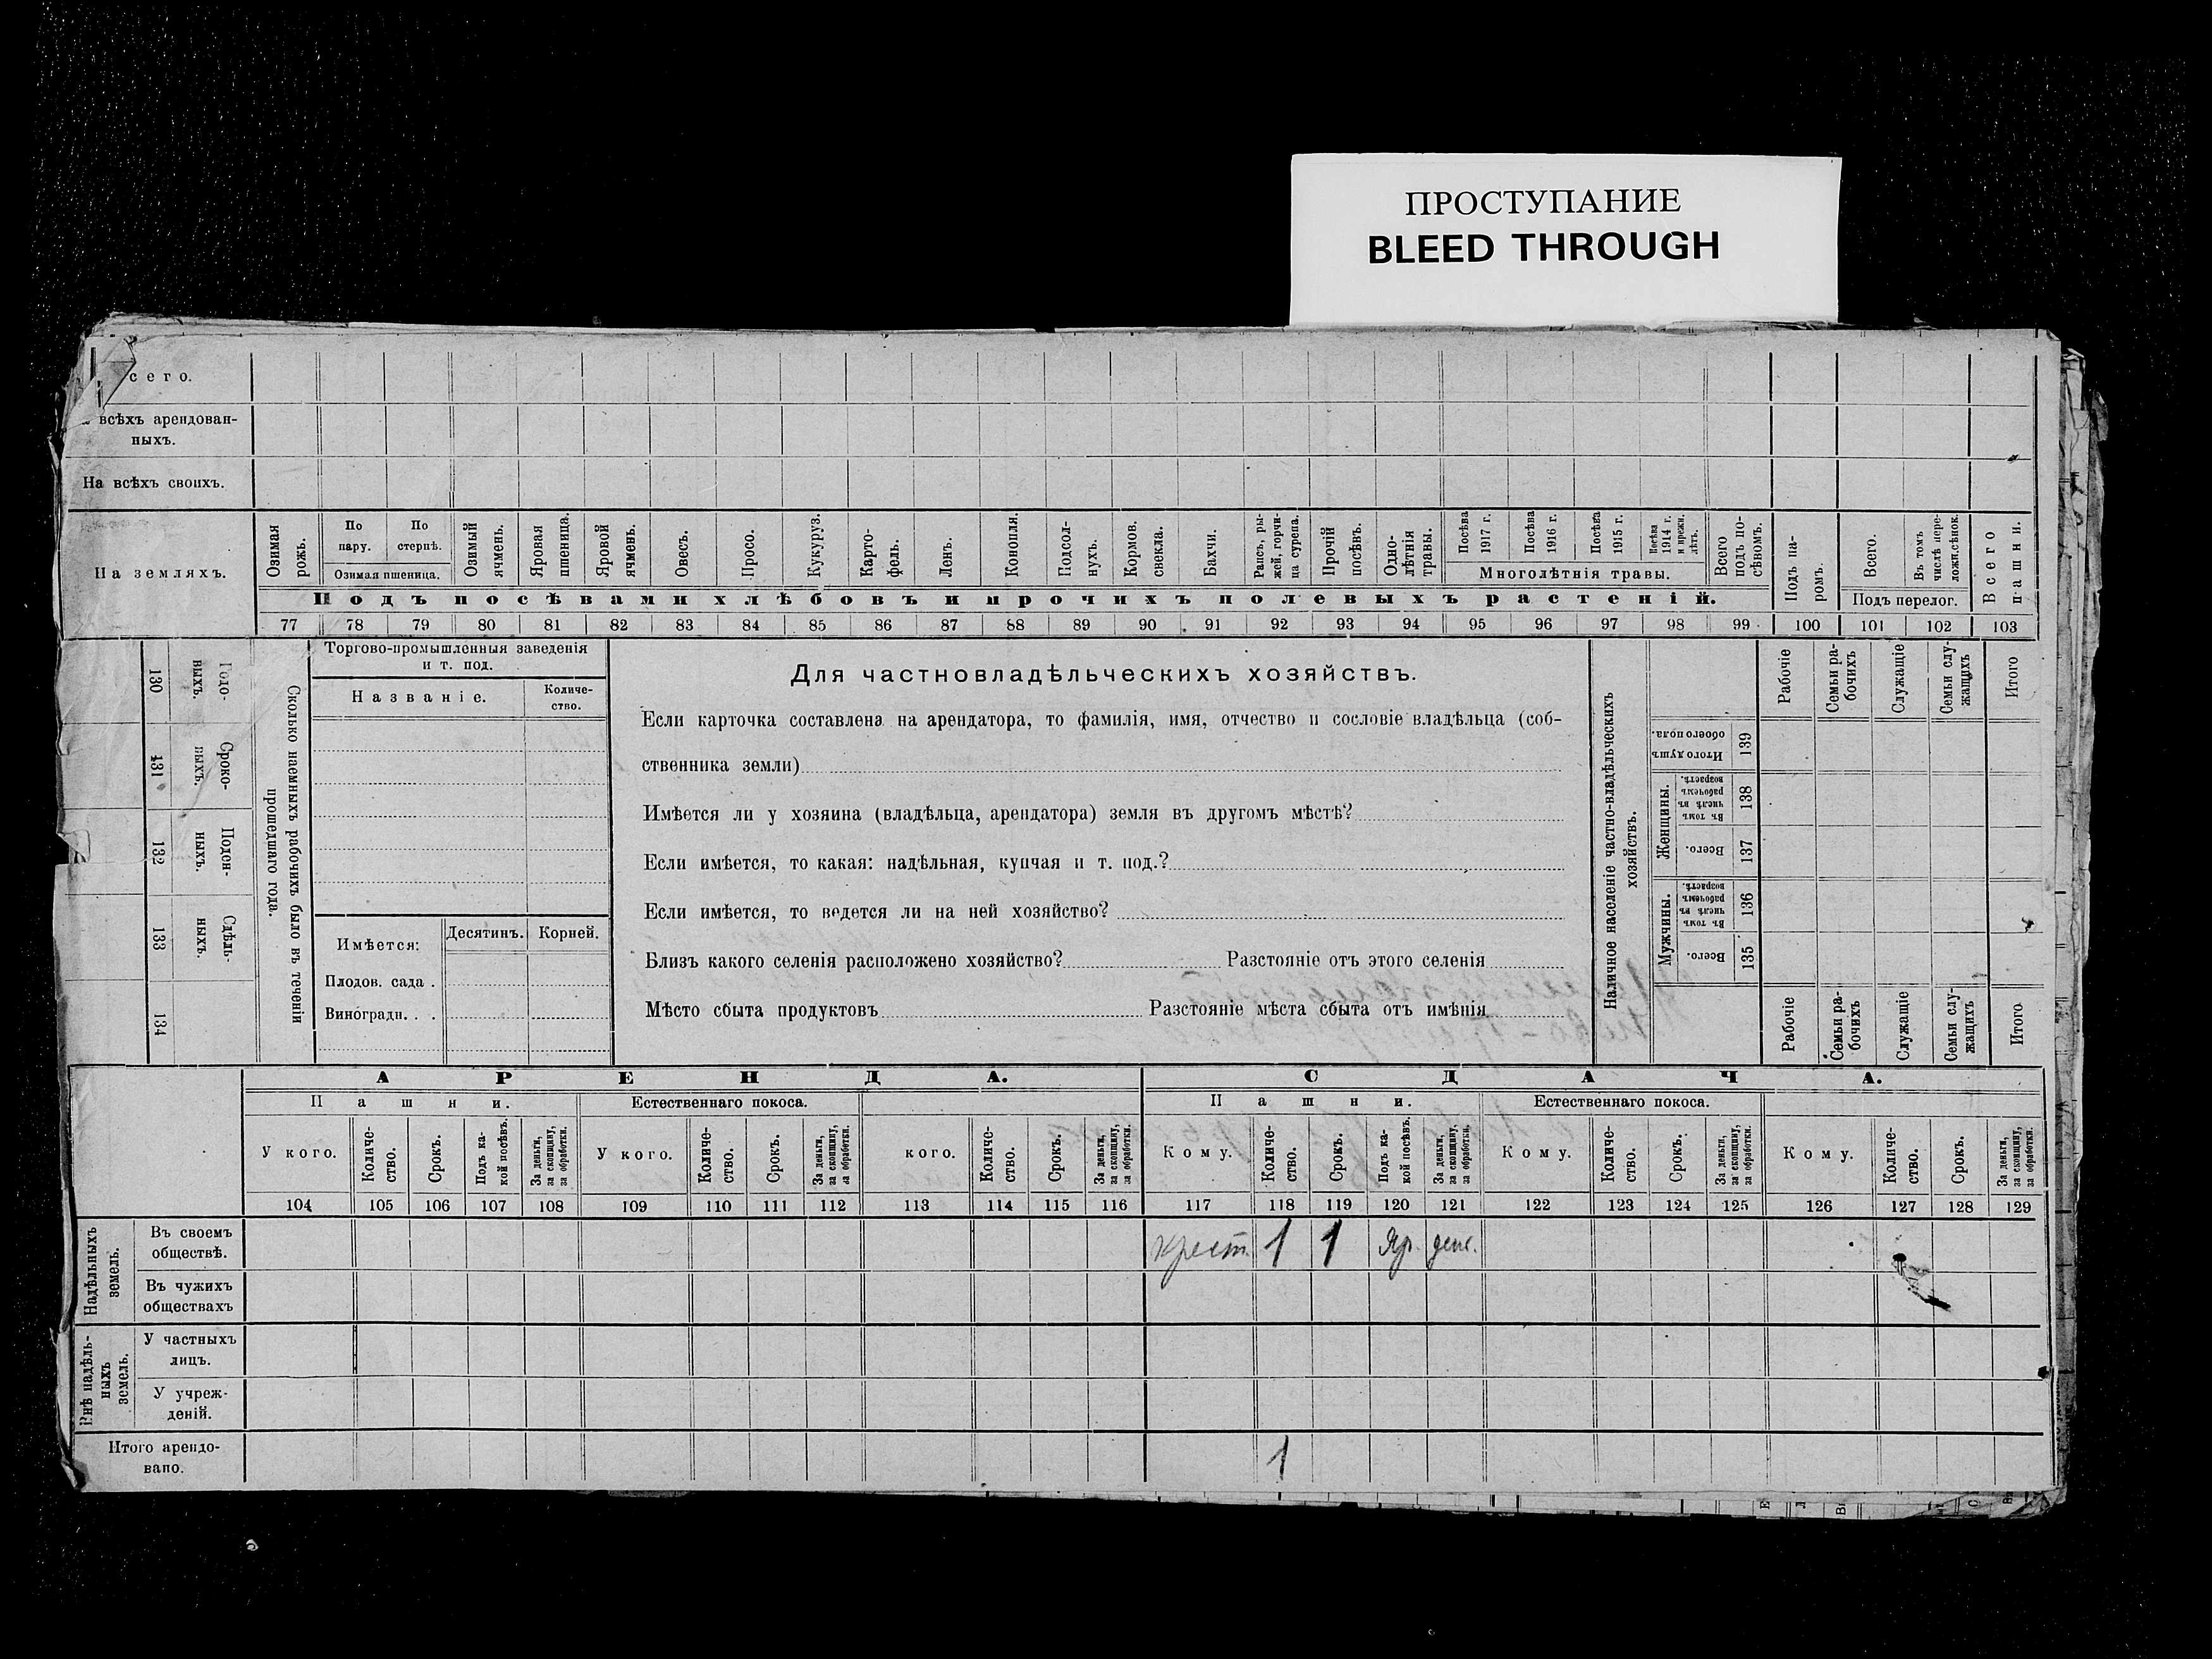 ПРОСТУПАНИЕ
BLEED THROUGH
сего.
всѣхъ арендован-
ныхъ.
На всѣхъ своихъ.
На земляхъ.
Озимая рожь.
По пару.
По стернѣ.
Озимая пшеница.
Озимый ячмень.
Яровая пшеница.
Яровой ячмень.
Овесъ.
Просо.
Кукуруз.
Карто-
фель.
Ленъ.
Конопля.
Подсол-
нухъ.
Кормов. свекла.
Бахчи.
Рапсъ, ры-
жей, горчи-
ца сурепа.
Прочій посѣвъ.
Одно-
лѣтнія
травы.
Посѣва 1917 г.
Посѣва 1916 г.
Посѣва 1915 г.
Посѣва 1914 г. и прежн. лѣтъ.
Многолѣтнія травы.
Всего подъ по-
сѣвомъ.
Подъ па-
ромъ.
Всего.
Въ томъ числѣ пере-
ложн.сѣнок.
Подъ перелог.
Всего пашни.
Подъ посѣвами хлѣбовъ и прочихъ полевыхъ растеній.
77 78 79 80 81 82 83 84 85 86 87 88 89 90 91 92 93 94 95 96 97 98 99 100 101 102 103
130 Годо-
выхъ.
131 Сроко-
выхъ.
132 Поден-
ныхъ.
133 Сдѣль-
ныхъ.
134
Сколько наемныхъ рабочихъ было въ теченіи
прошедшаго года.
Торгово-промышленныя заведенія
и т. под.
Названіе.
Количе-
ство.
Имѣется:
Десятинъ.
Корней.
Плодов. сада .
Виноградн. . .
Для частновладѣльческихъ хозяйствъ.
Если карточка составлена на арендатора, то фамилія, имя, отчество и сословіе владѣльца (соб-
ственника земли)
Имѣется ли у хозяина (владѣльца, арендатора) земля въ другомъ мѣстѣ?
Если имѣется, то какая: надѣльная, купчая и т. под.?
Если имѣется, то ведется ли на ней хозяйство?
Близъ какого селенія расположено хозяйство? Разстояніе отъ этого селенія
Мѣсто сбыта продуктовъ Разстояніе мѣста сбыта отъ имѣнія
Наличное населеніе частно-владѣльческихъ
хозяйствъ.
Рабочіе
Семьи ра-
бочихъ
Служащіе
Семьи слу-
жащихъ
Итого
Итого душъ
обоего пола.
139
Женщины.
Въ томъ числѣ въ рабочемъ возрастѣ.
138
Всего.
137
Мужчины.
Въ томъ числѣ въ рабочемъ возрастѣ.
136
Всего.
135
Рабочіе
Семьи ра-
бочихъ
Служащіе
Семьи слу-
жащихъ
Итого
АРЕНДА.
СДАЧА.
Пашни.
Естественнаго покоса.
Пашни.
Естественнаго покоса.
У кого.
Количе-
ство.
Срокъ.
Подъ ка-
кой посѣвъ.
За деньги,
за скопщину,
за обработки.
У кого.
Количе-
ство.
Срокъ.
За деньги,
за скопщину,
за обработки.
кого.
Количе-
ство.
Срокъ.
За деньги,
за скопщину,
за обработки.
Кому.
Количе-
ство.
Срокъ.
Подъ ка-
кой посѣвъ.
За деньги,
за скопщину,
за обработки.
Кому.
Количе-
ство.
Срокъ.
За деньги,
за скопщину,
за обработки.
Кому.
Количе-
ство.
Срокъ.
За деньги,
за скопщину,
за обработки.
104 105 106 107 108 109 110 111 112 113 114 115 116 117 118 119 120 121 122 123 124 125 126 127 128 129
Надѣльныхъ
земель.
Въ своемъ
обществѣ.
крест. 1 1 яр. ден.
Въ чужихъ
обществахъ
Внѣ надѣль-
ныхъ
земель.
У частныхъ
лицъ.
У учреж-
деній.
Итого арендо-
вано.
1